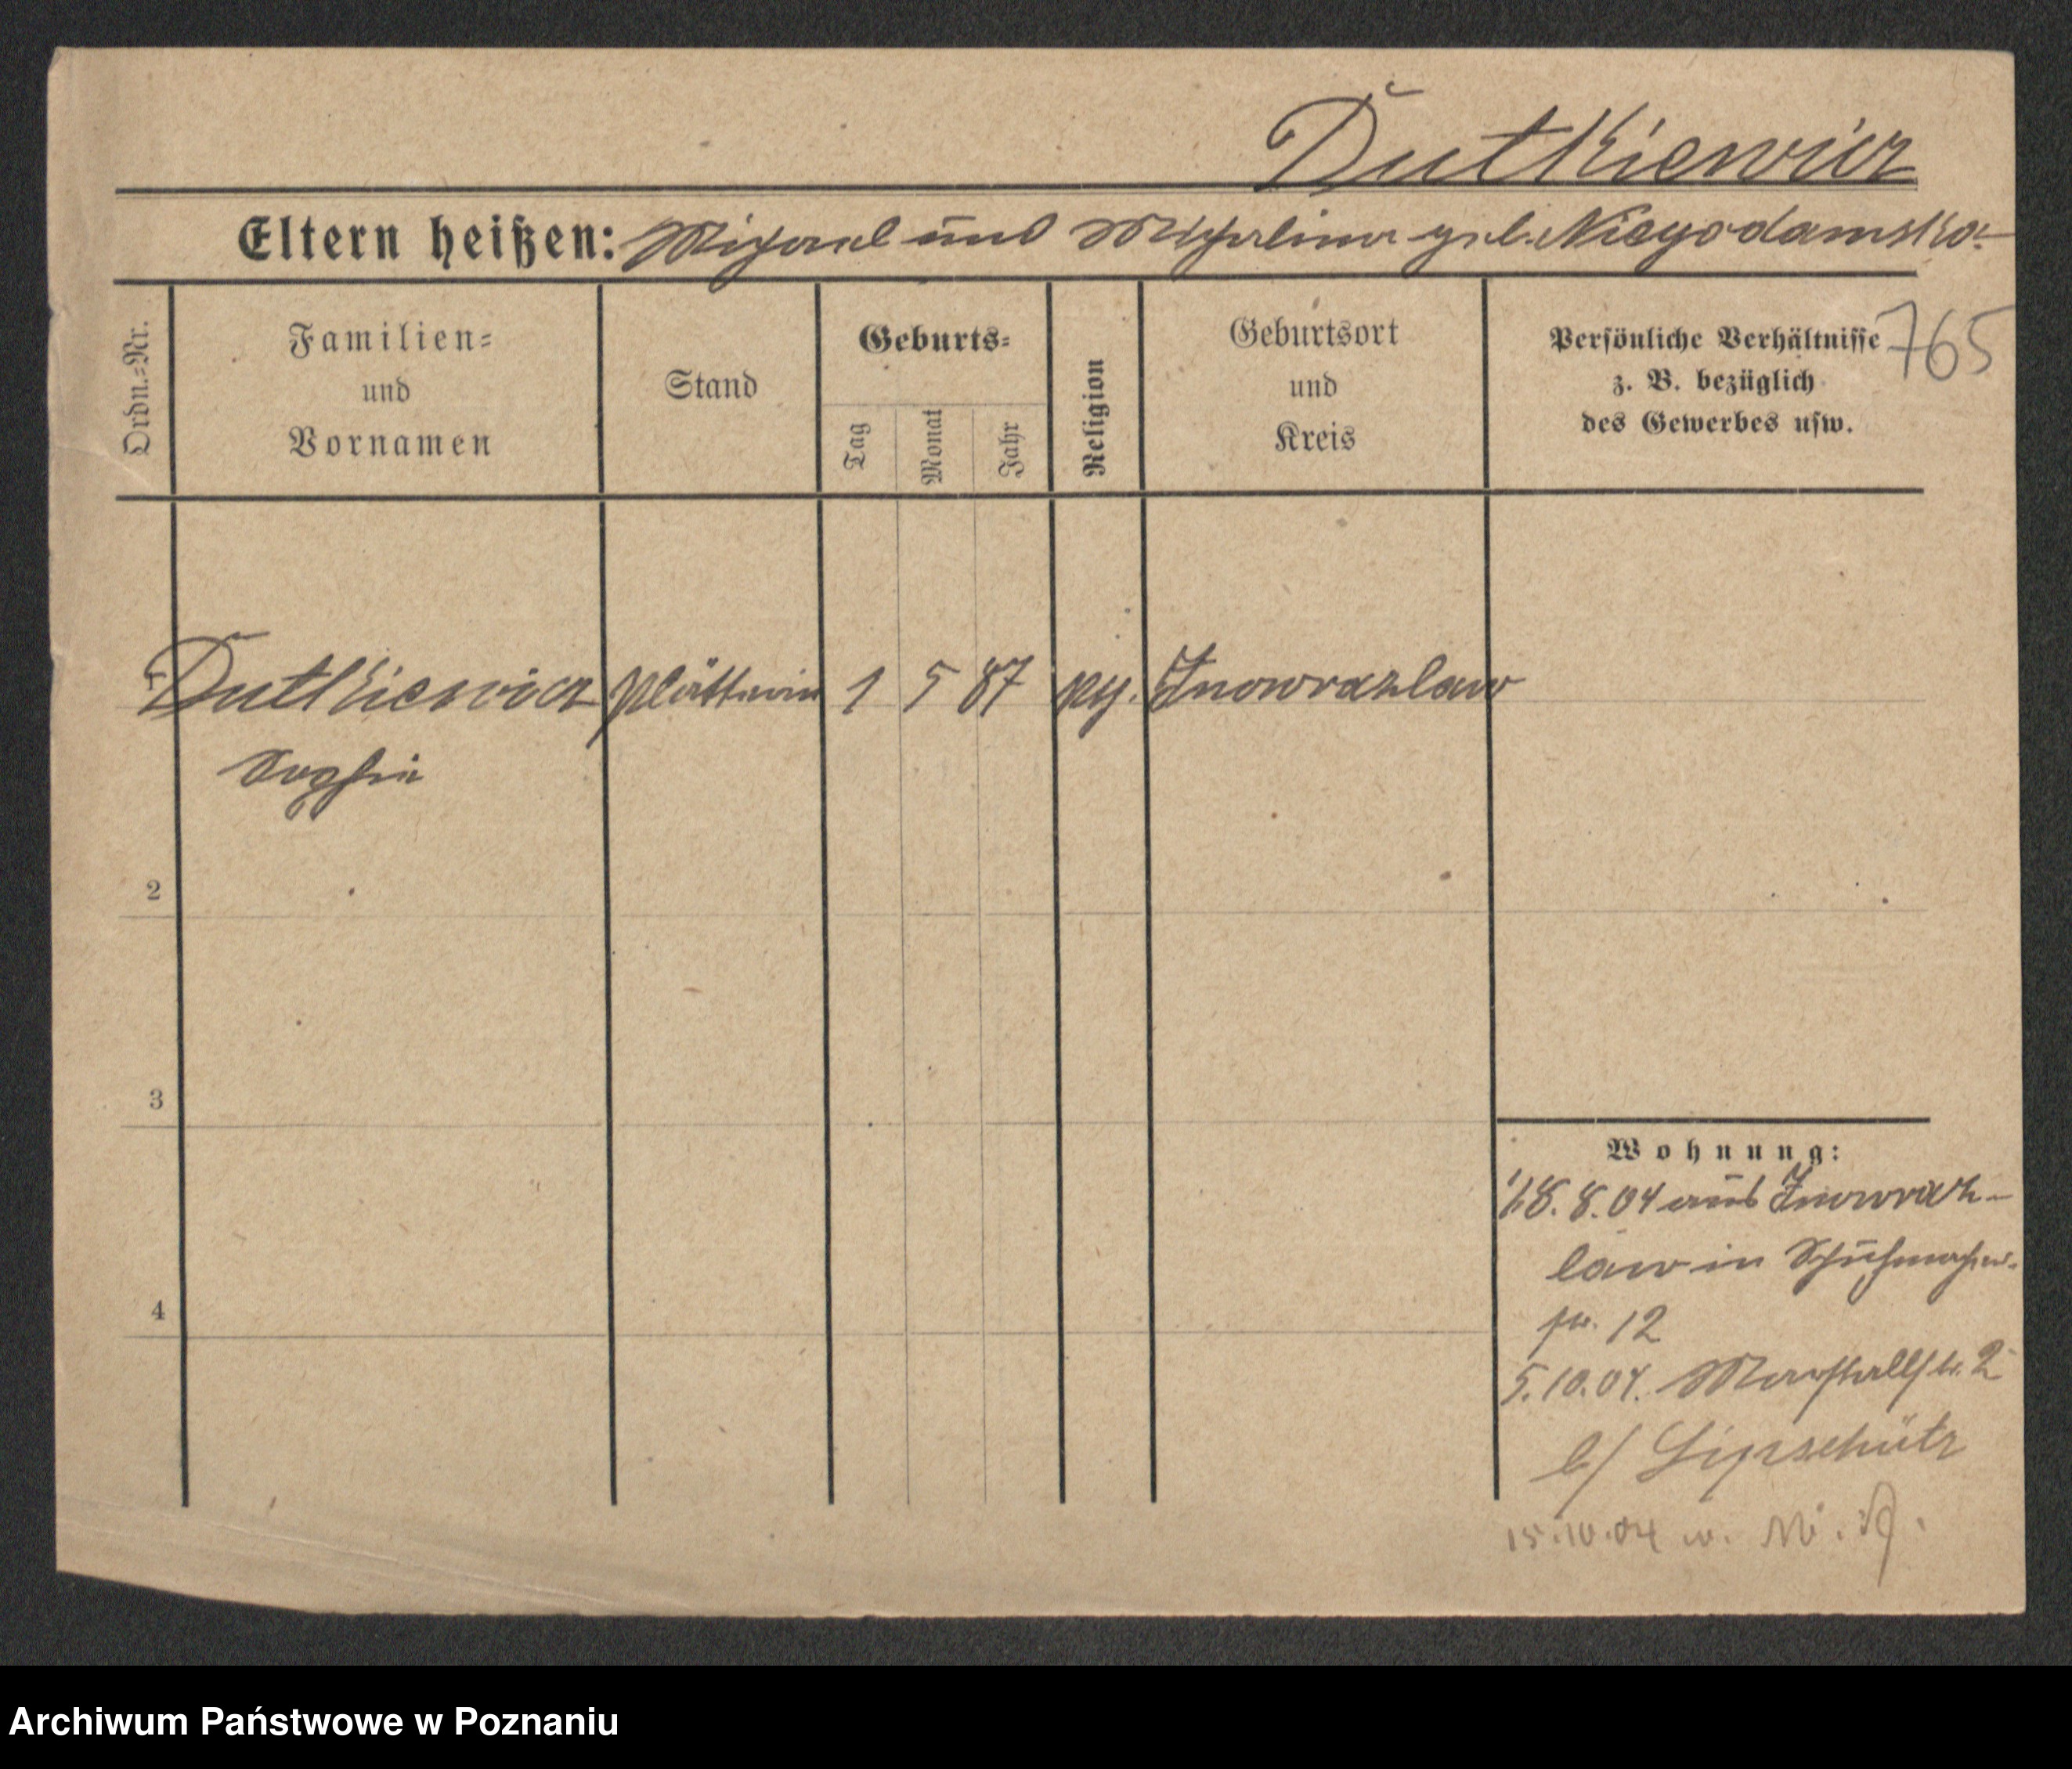 Dutkiewicz
Eltern heißen: Michael und Michalina geb. Niegodamska
765
Ordn.=Nr.
Familien=
und
Vornamen
Stand
Geburts=
Tag
Monat
Jahr
Religion
Geburtsort
und
Kreis
Persönliche Verhältnisse
z. B. bezüglich
des Gewerbes usw.
Dutkiewicz Plätterin 1 5 87 Inowrazlaw
Sophie
2
3
4
Wohnung:
18.8.04 aus Inowraz-
law in Schuhmacher-
str. 12
5.10.04. Marstallstr. 2
b/ Lipschütz
15.10.04
Archiwum Państwowe w Poznaniu